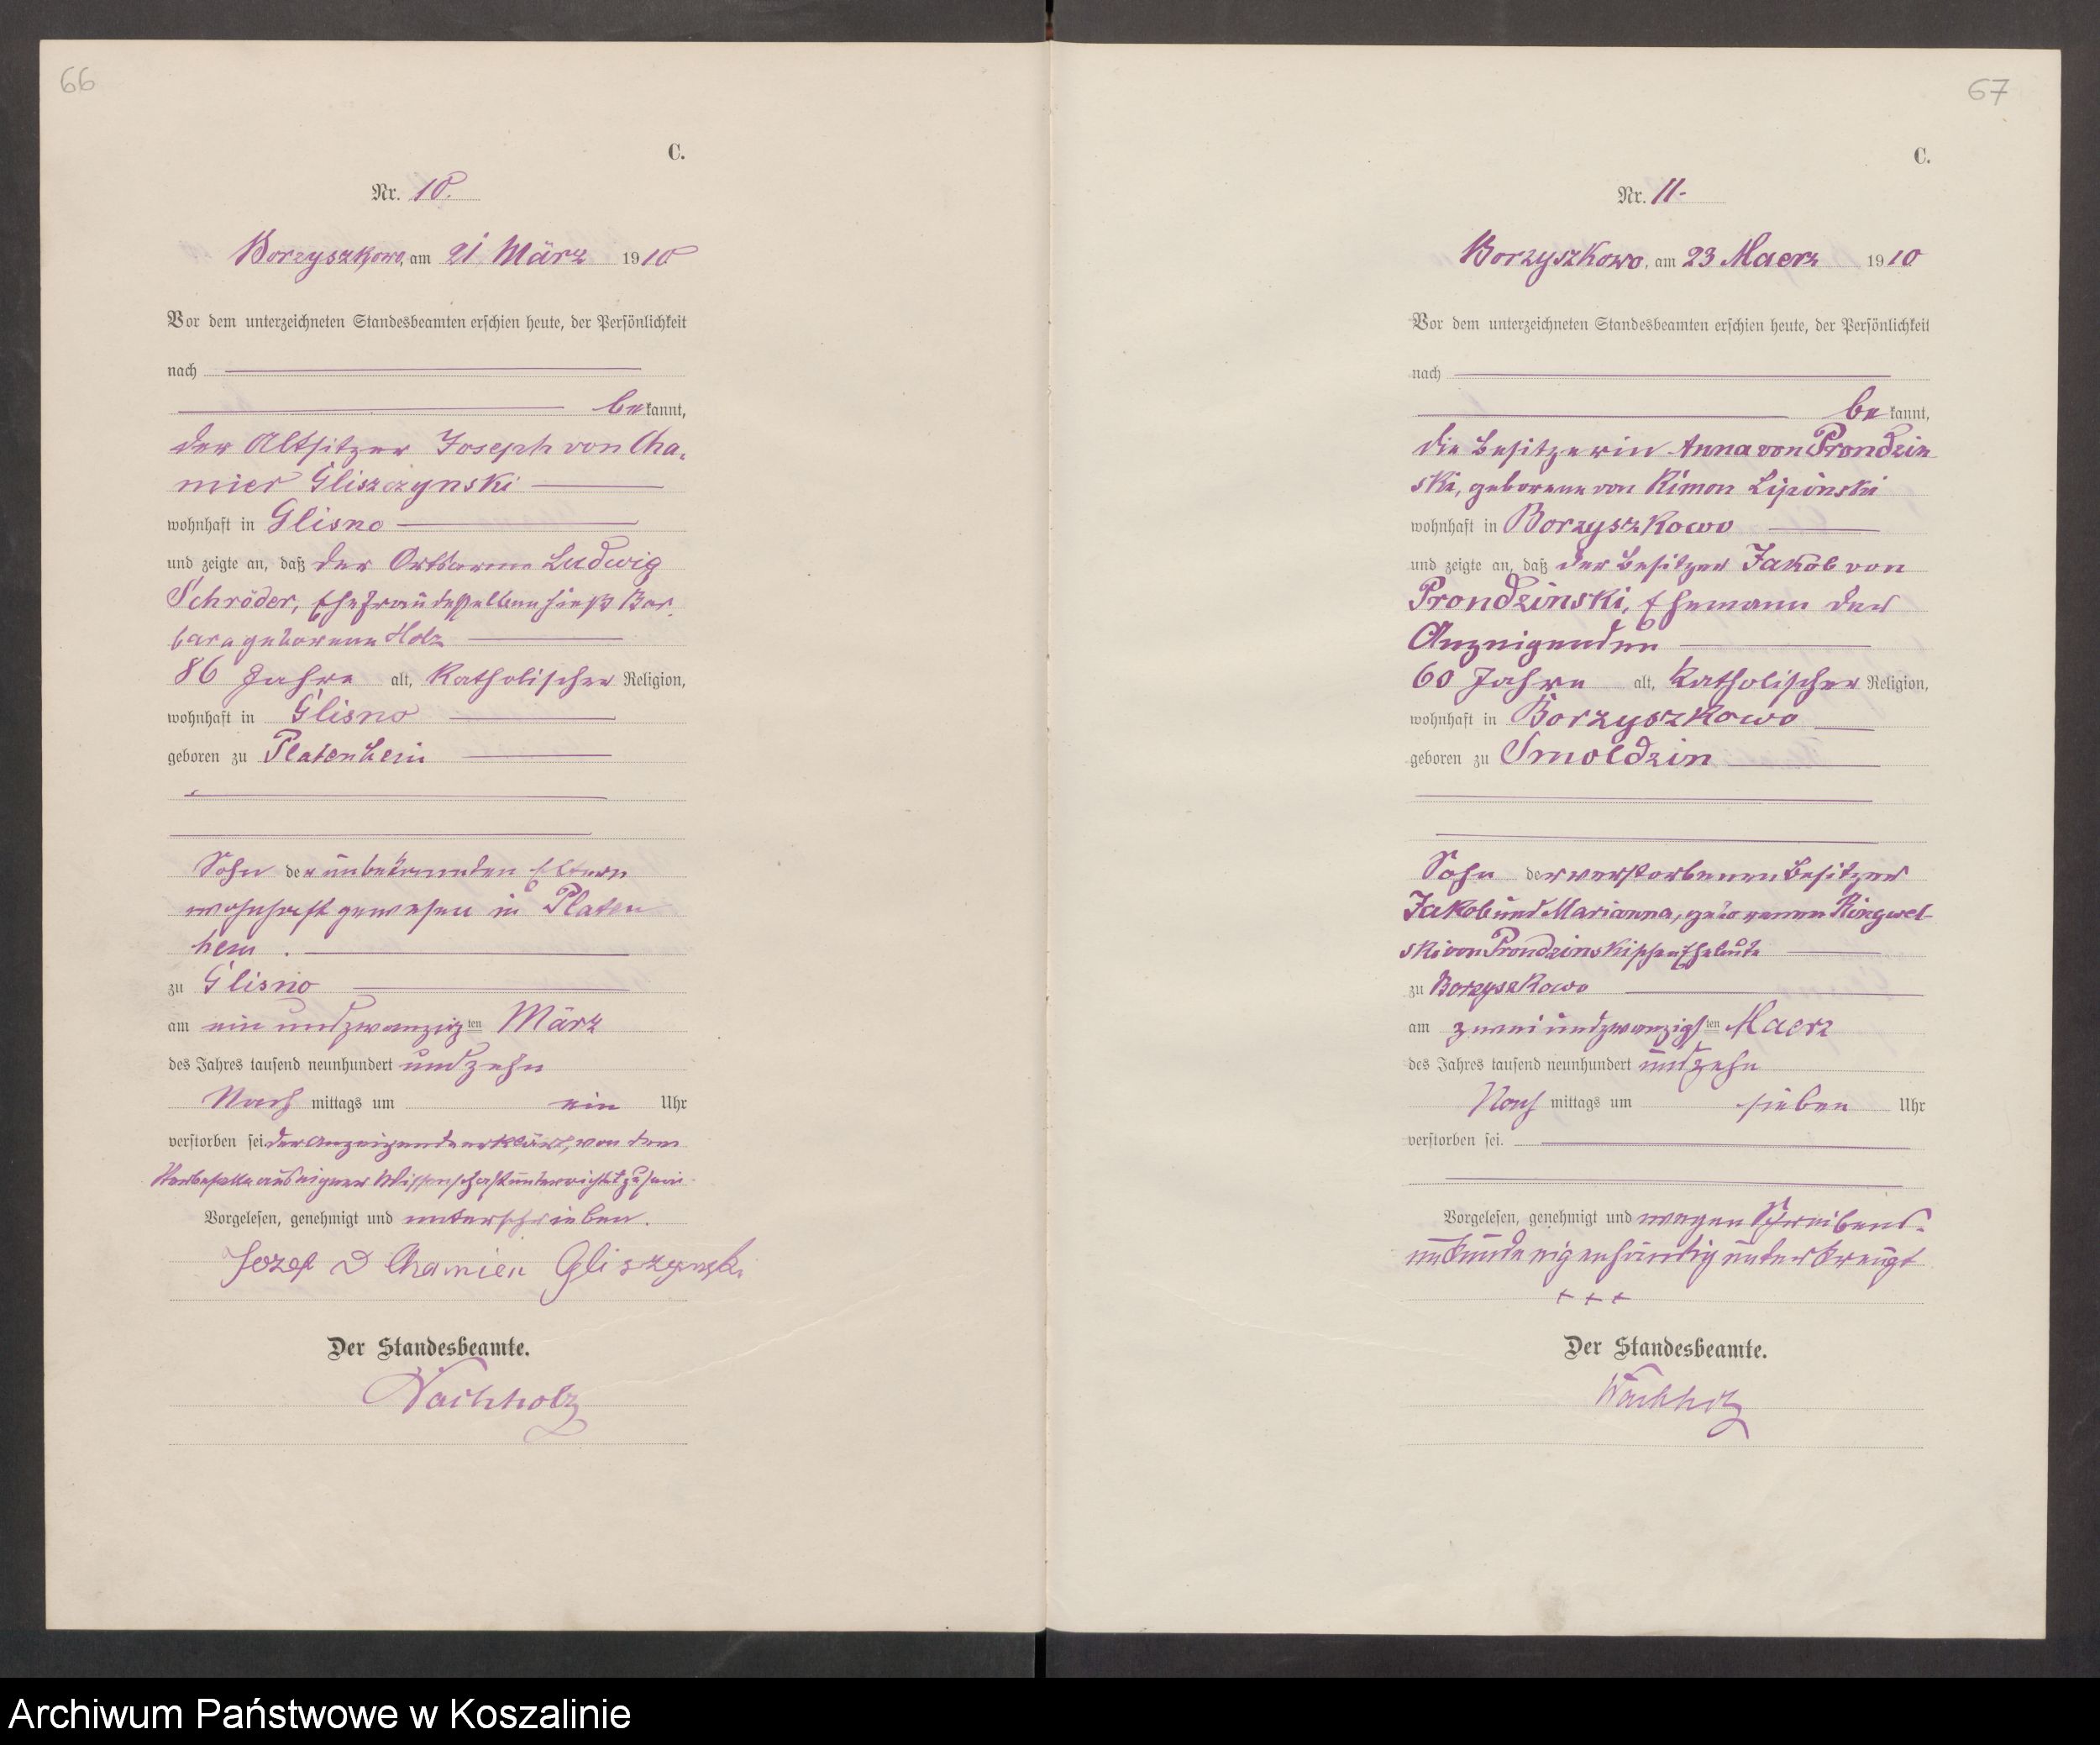 66
C.
Nr. 10.
Borzyszkowo, am 21 März 1910
Vor dem unterzeichneten Standesbeamten erschien heute, der Persönlichkeit
nach
bekannt,
der Altsitzer Joseph von Cha-
mier Gliszczynski
wohnhaft in Glisno
und zeigte an, daß der Ortsarme Ludwig
Schröder, Ehefrau desselben hieß Bar-
bara geborene Holz
86 Jahre alt, katholischer Religion,
wohnhaft in Glisno
geboren zu Platenheim
Sohn der unbekannten Eltern
wohnhaft gewesen in Platen
heim.
zu Glisno
am ein und zwanzigten März
des Jahres tausend neunhundert und zehn
Nach mittags um ein Uhr
verstorben sei der Anzeigende erklärt, von dem
Sterbefalle aus eigener Wissenschaft unterrichtet zu sein.
Vorgelesen, genehmigt und unterschrieben.
Jozef Chamier Gliszynski
Der Standesbeamte.
Wachholz
67
C.
Nr. 11-
Borzyszkowo, am 23 Maerz 1910
Vor dem unterzeichneten Standesbeamten erschien heute, der Persönlichkeit
nach
bekannt,
die Besitzerin Anna von Prondzin
ski, geborene von Kimon Lipinski
wohnhaft in Borzyszkowo
und zeigte an, daß der Besitzer Jakob von
Prondzinski, Ehemann der
Anzeigenden
60 Jahre alt, katholischer Religion,
wohnhaft in Borzyszkowo
geboren zu Smoldzin
Sohn der verstorbenen Besitzer
Jakob und Marianna, geborenen Ringwel-
ski von Prondzinskischen Eheleute
zu Borzyszkowo
am zwei und zwanzigsten Maerz
des Jahres tausend neunhundert und zehn
Nach mittags um sieben Uhr
verstorben sei.
Vorgelesen, genehmigt und wegen Schreibens-
unkunde eigenhändig unterkreuzt
+ + +
Der Standesbeamte.
Wachholz
Archiwum Państwowe w Koszalinie